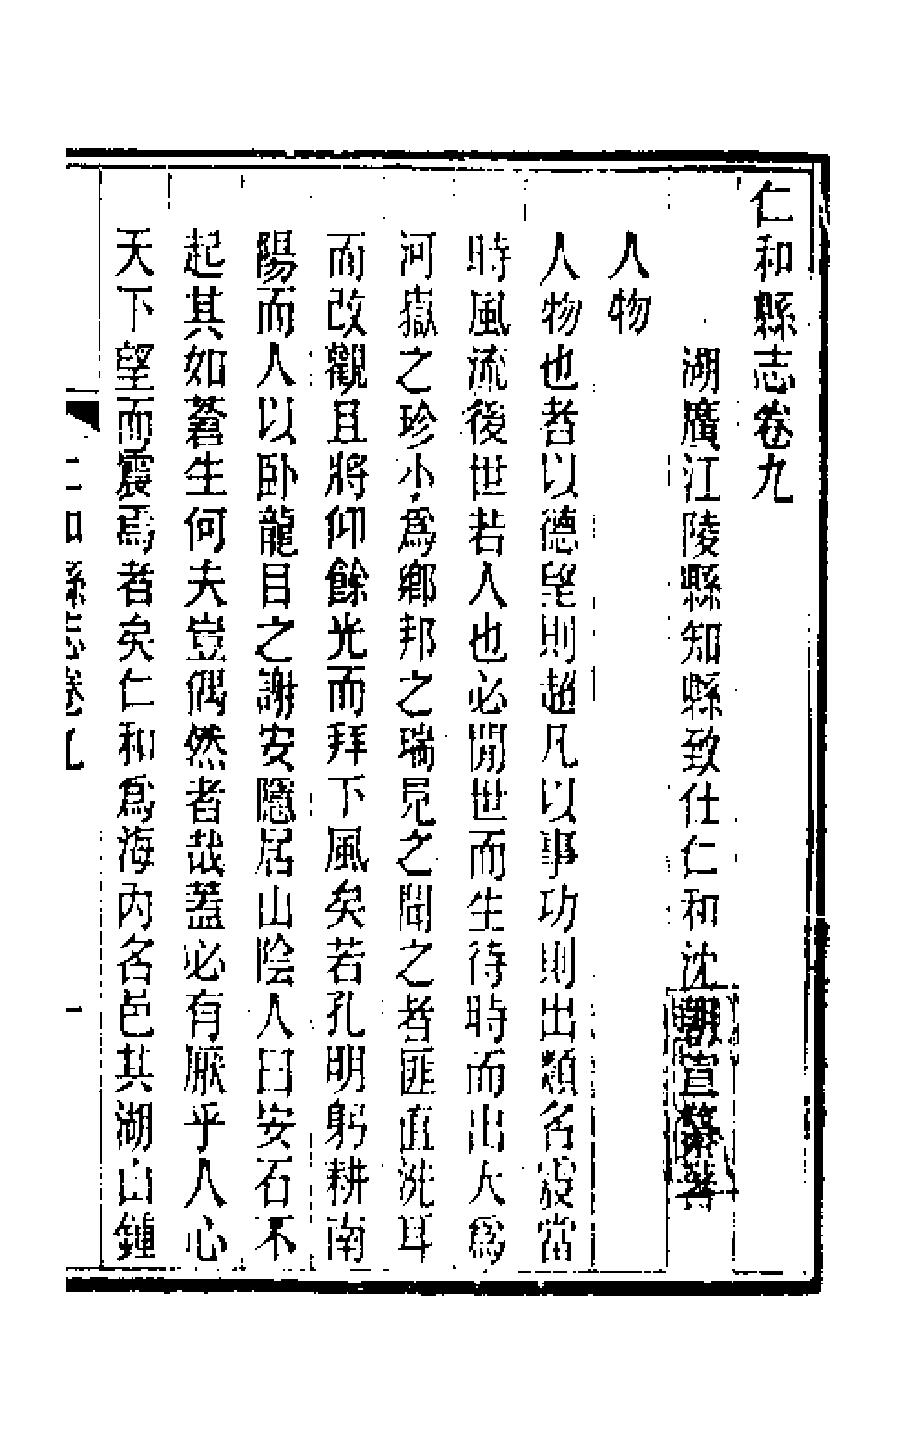 仁和縣志卷九
湖廣江陵縣知縣致仕仁和沈朝宣纂
人物
人物也者以德望則超凡以事功則出類名設當
時風流後世若人也必閒世而生待時而出大爲
河嶽之珍小爲鄉邦之瑞見之聞之者匪直洗耳
而改觀且將仰餘光而拜下風矣若孔明躬耕南
陽而人以卧龍目之謝安隱居山陰人曰安石不
起其如蒼生何夫豈偶然者哉蓋必有厭乎人心
天下望而震焉者矣仁和爲海內名邑其湖山鍾
仁和縣志卷九
一